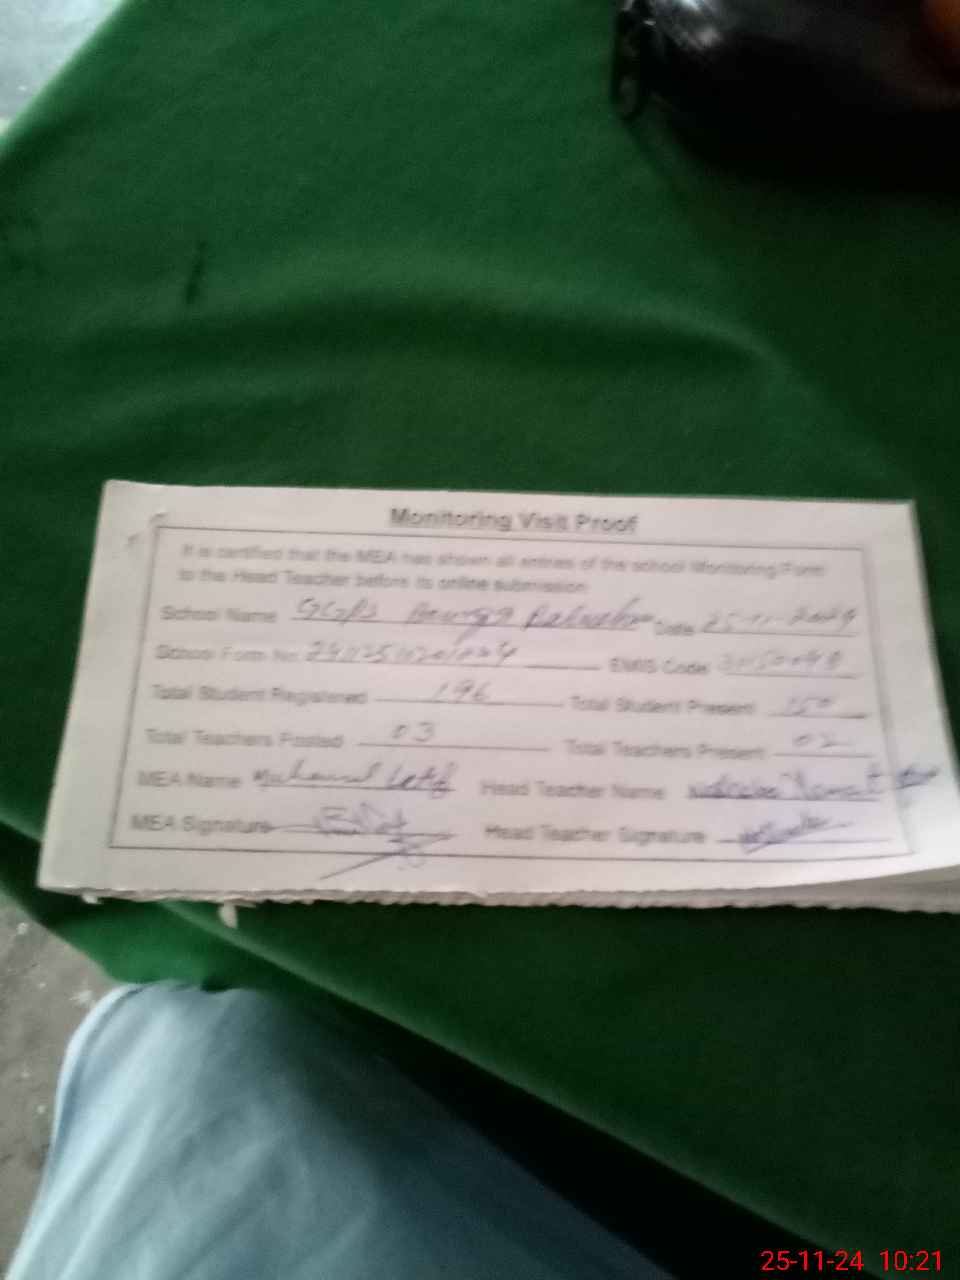 Monitoring Visit Proof
It is certified that the MEA has shown all entries of the school Monitoring Form
to the Head Teacher before its online submission
School Name Date 25-11-2024
School Form No. EMIS Code
Total Student Registered 196 Total Student Present 150
Total Teachers Posted 03 Total Teachers Present 02
MEA Name Muhammad Head Teacher Name
MEA Signature Head Teacher Signature
25-11-24 10:21